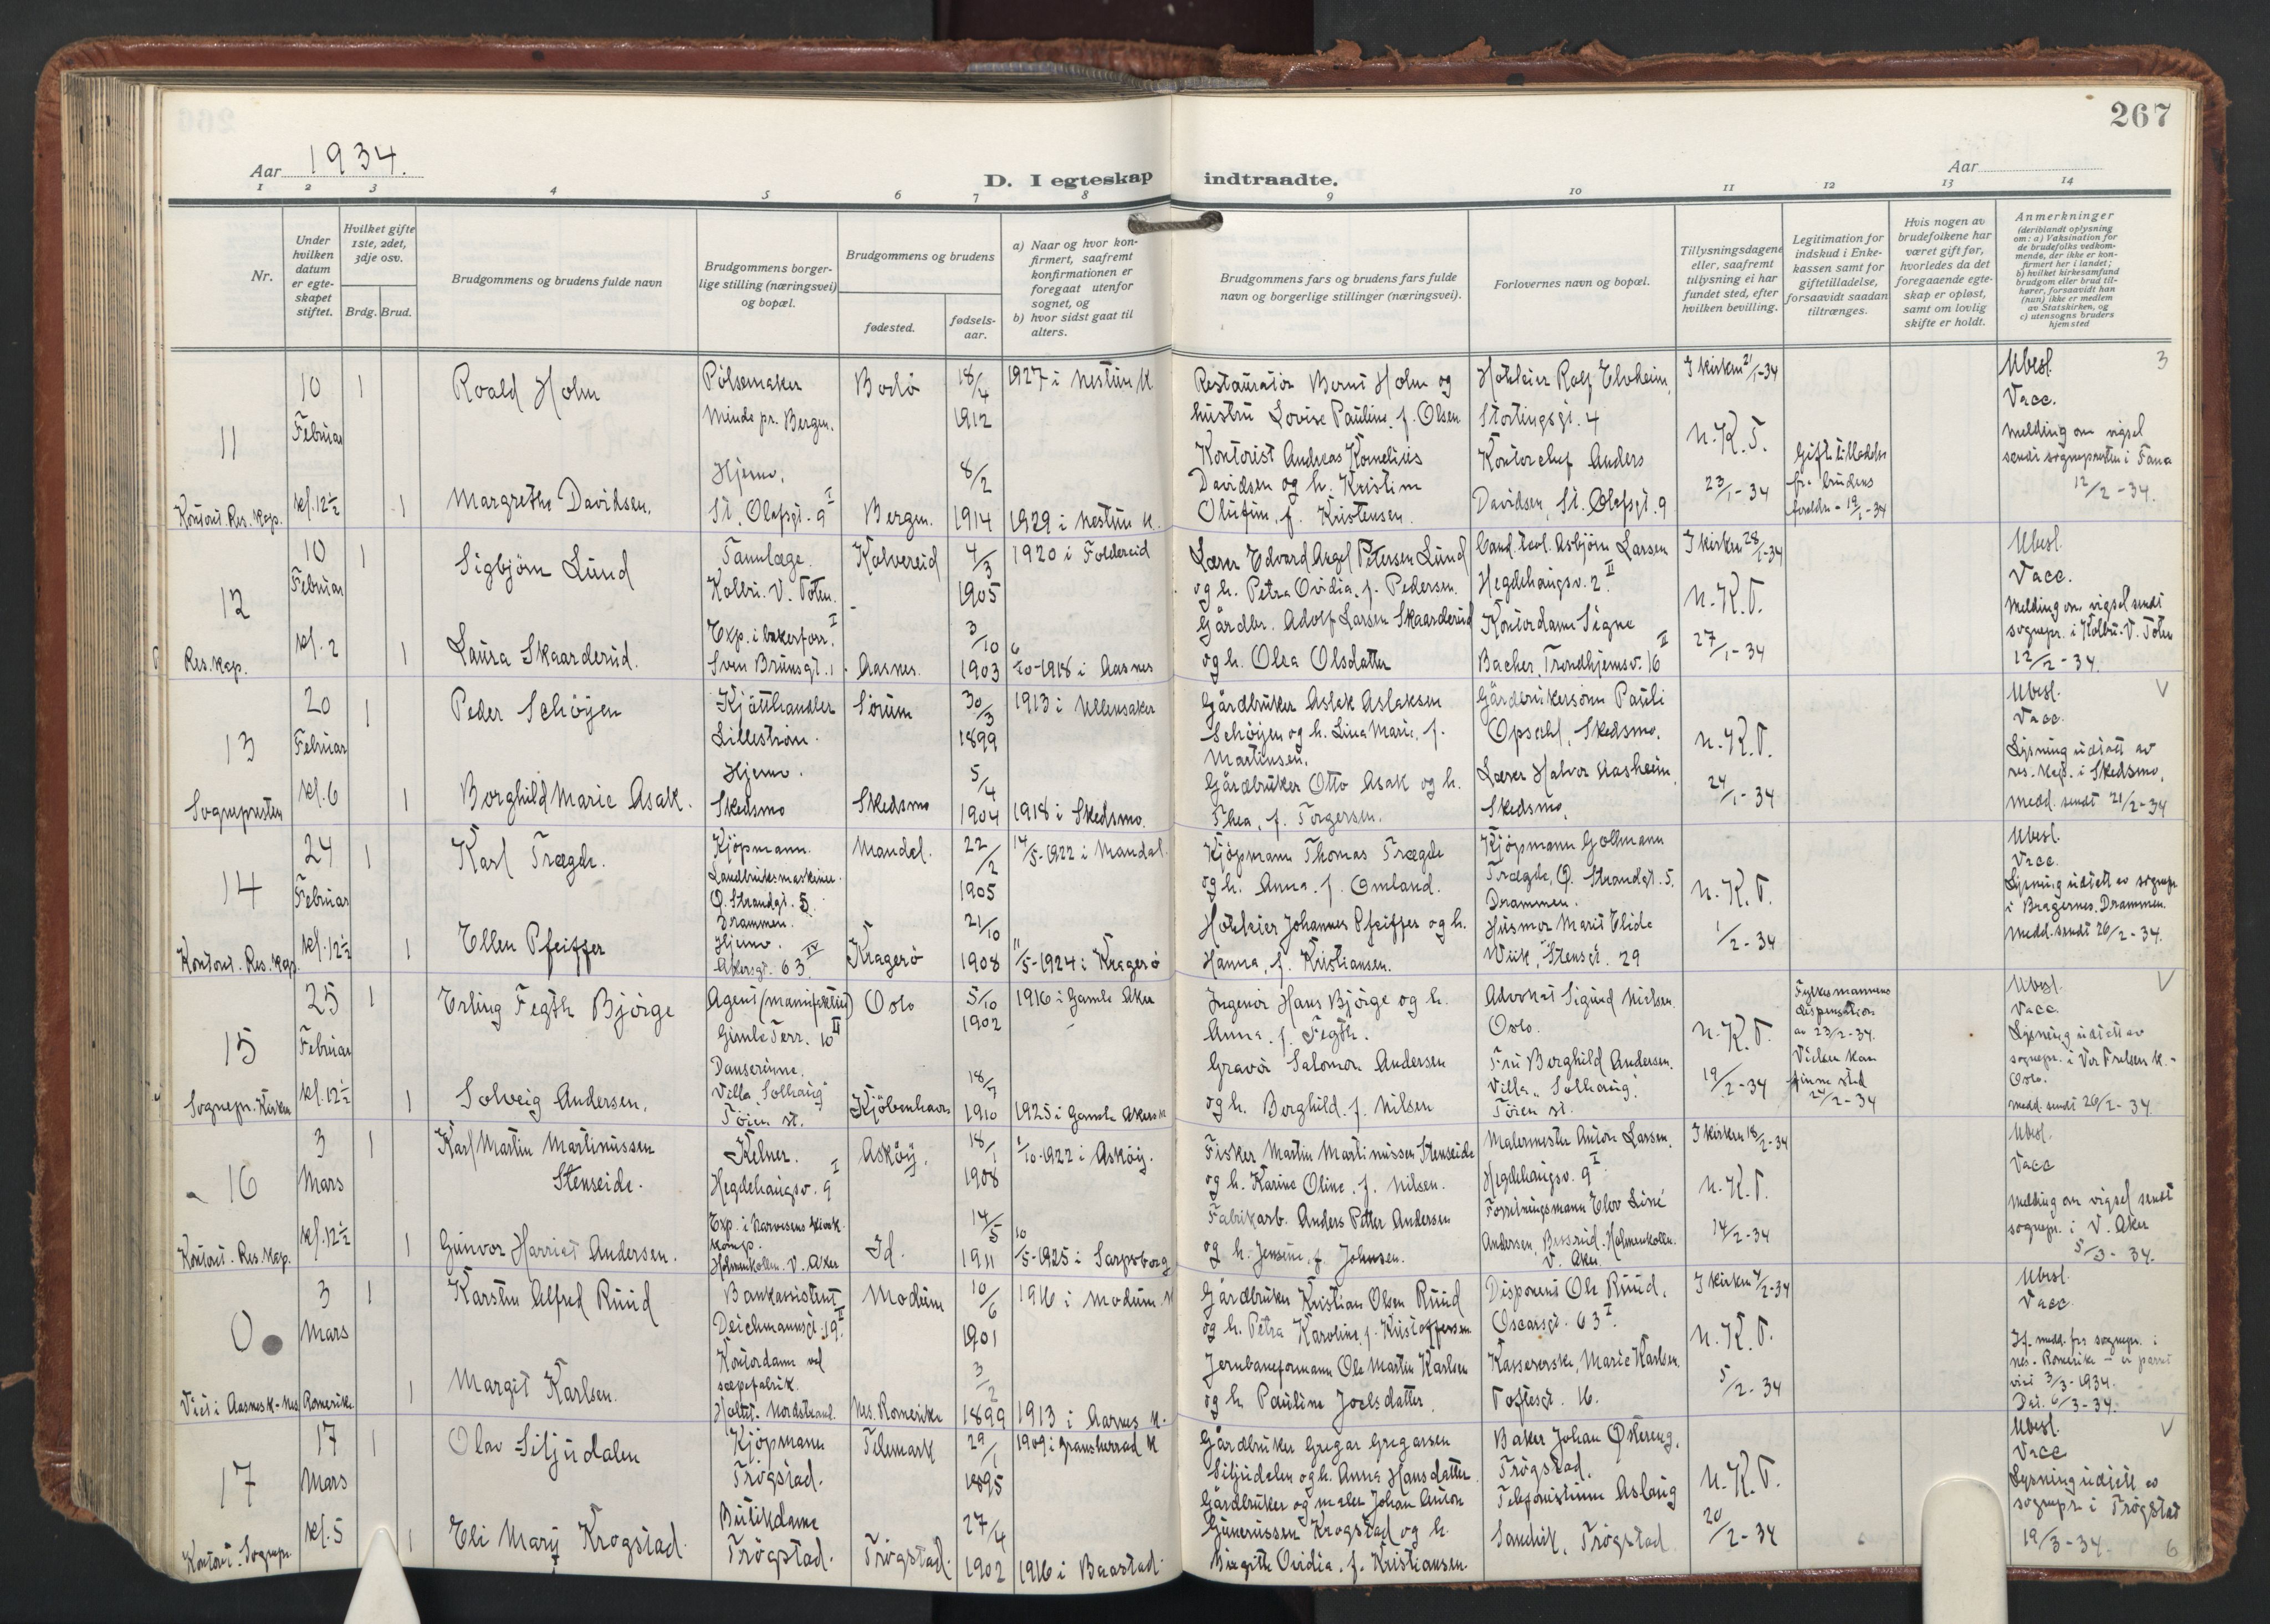 267
Aar 1934.
D. I egteskap indtraadte.
Aar
1 2 3 4 5 6 7 8 9 10 11 12 13 14
Nr.
Under hvilken datum er egteskapet stiftet.
Hvilket gifte 1ste, 2det, 3dje osv.
Brdg. Brud.
Brudgommens og brudens fulde navn
Brudgommens borgerlige stilling (næringsvei) og bopæl.
Brudgommens og brudens
fødested.
fødselsaar.
a) Naar og hvor konfirmert, saafremt konfirmationen er foregaat utenfor sognet, og
b) hvor sidst gaat til alters.
Brudgommens fars og brudens fars fulde navn og borgerlige stillinger (næringsvei).
Forlovernes navn og bopæl.
Tillysningsdagene eller, saafremt tillysning ei har fundet sted, efter hvilken bevilling.
Legitimation for indskud i Enkekassen samt for giftetilladelse, forsaavidt saadan tiltrænges.
Hvis nogen av brudefolkene har været gift før, hvorledes da det foregaaende egteskap er opløst, samt om lovlig skifte er holdt.
Anmerkninger (deriblandt oplysning om: a) Vaksination for de brudefolks vedkommende, der ikke er konfirmert her i landet; b) hvilket kirkesamfund brudgom eller brud tilhører, forsaavidt han (hun) ikke er medlem av Statskirken, og c) utensogns bruders hjemsted
11
10 Februar kl. 12½
Kontoret. Res. kap.
1 Roald Holm
Pølsemaker
Minde pr. Bergen.
Bodø
18/4 1912
1927 i Nestun K.
Restauratør Bernt Holm og
hustru Lovise Pauline, f. Olsen
Stortingsgt. 4
I kirken 21/1-34
N.K.T.
23/1-34
Ubesl.
Vacc.
Melding om vigsel
sendt sognepresten i Fana
12/2-34.
3
1 Margrethe Davidsen.
Hjemv.
St. Olafsgt. 9 I
Bergen.
8/2 1914
1929 i Nestun K.
Kontorist Andreas Kornelius
Davidsen og h. Kristine
f. Kristensen.
Kontorchef Anders
Davidsen, St. Olafsgt. 9
brudens
foreldre - 19/1-34
12
10 Februar kl. 2
Res. kap.
1 Sigbjørn Lund
Tannlæge.
Kolbu. V. Toten.
Kolvereid
4/3 1905
1920 i Foldereid
Lærer Edvard Angel Petersen Lund
og h. Petra Ovidia, f. Pedersen.
Asbjørn Larsen
Hegdehaugsv. 2 II
I kirken 28/1-34
N.K.T.
27/1-34
Ubesl.
Vacc.
Melding om vigsel sendt
sognepr. i Kolbu. V. Toten
12/2-34.
1 Laura Skaarderud.
Exp. i bakerforr.
Sven Brunsgt. 1 I
Aasnes.
3/10 1903
6/10-1918 i Aasnes
Gårdbr. Adolf Larsen Skaarderud
og h. Olea Olsdatter
Kontordame Signe
Bacher, Trondhjemsv. 16 II
13
20 Februar kl. 6
Sognepresten
1 Peder Schöyen
Kjötthandler
Lilleström.
Sörum
30/3 1899
1913 i Ullensaker
Gårdbruker Aslak Aslaksen
Schöyen og h. Lina Marie, f.
Martinsen.
Gårdbrukersönn Pauli
Opsahl, Skedsmo.
N.K.T.
24/1-34
Ubesl.
Vacc.
Lysning utstedt av
res. kap. i Skedsmo.
Medd. sendt 21/2-34
1 Borghild Marie Asak.
Hjemv.
Skedsmo
Skedsmo
5/4 1904
1918 i Skedsmo.
Gårdbruker Otto Asak og h.
Thea, f. Torgersen.
Lærer Halvor Aasheim,
Skedsmo.
14
24 Februar kl. 12½
Kontoret. Res. kap.
1 Karl Trægde.
Kjöpmann.
Landbruksmaskiner.
Ö. Strandgt. 5.
Drammen.
Mandal.
22/2 1905
14/5-1922 i Mandal.
Kjöpmann Thomas Trægde
og h. Anna. f. Omland.
Kjöpmann
Trægde, Ö. Strandgt. 5.
Drammen.
N.K.T.
1/2-34
Ubesl.
Vacc.
Lysning utstedt av sognepr.
i Bragernes. Drammen.
Medd. sendt 26/2-34.
1 Ellen Pfeiffer
Hjemv.
Akersgt. 63 IV
Kragerö
21/10 1908
11/5-1924 i Kragerö
Hotelleier Johannes Pfeiffer og h.
Hanna, f. Kristiansen.
Husmor Marit Elide
Wiik, Stensgt. 29
15
25 Februar kl. 12½
Sognepr. Kirken
1 Erling Fegth Björge
Agent (manufaktur)
Gimle Terr. 10 II
Oslo
5/10 1902
1916 i Gamle Aker
Ingeniør Hans Björge og h.
Anna. f. Fegth.
Advokat Sigurd Nielsen.
Oslo.
N.K.T.
19/2-34
Fylkesmannens
dispensation
av 23/2-34.
Vielsen kan
finne sted
24/2-34
Ubesl.
Vacc.
Lysning utstedt av
sognepr. i Vor Frelsers k. -
Oslo.
Medd. sendt 26/2-34.
1 Solveig Andersen.
Danserinne.
Villa "Solhaug"
Töien st.
Kjöbenhavn
18/7 1910
1925 i Gamle Akers k
Gravør Salomon Andersen
og h. Borghild. f. Nilsen
Fru Borghild Andersen.
Villa "Solhaug".
Töien st.
16
3 Mars kl. 12½
Kontoret. Res. kap.
1 Karl Martin Martinussen
Stenseide.
Kelner.
Hegdehaugsv. 9 I
Asköy.
18/1 1908
1/10-1922 i Asköy.
Fisker Martin Martinussen Stenseide
og h. Karine Oline. f. Nilsen.
Malermester Anton Larsen.
Hegdehaugsv. 9 I
I kirken 18/2-34
N.K.T.
14/2-34
Ubesl.
Vacc
Melding om vigsel sendt
sognepr. i V. Aker
5/3-34.
1 Gunvor Harriet Andersen.
Exp. i Narvesens kiosk-
komp.
Holmenkollen. V. Aker
Id.
14/5 1911
10/5-1925 i Sarpsborg
Fabrikarb. Anders Petter Andersen
og h. Jensine, f. Johnsen.
Andersen, Besserud. Holmenkollen.
V. Aker.
0
3 Mars
Viet i Aasnes k - Nes Romerike
1 Karsten Alfred Ruud
Bankassistent
Deichmannsgt. 19 II
Modum
10/6 1901
1916 i Modum. K
Gårdbruker Kristian Olsen Ruud
og h. Petra Karoline, f. Kristoffersen
Disponent Ole Ruud.
Oscarsgt. 63 I.
I kirken 4/2-34
N.K.T.
5/2-34
Ubesl.
Vacc.
If. medd. fra sognepr. i
Nes. Romerike - er parret
viet 3/3-1934.
Dat. 6/3-34.
1 Margit Karlsen.
Kontordame ved
sæpefabrik.
Holtet. Nordstrand.
Nes. Romerike
3/2 1899
1913 i Aarnes K.
Jernbaneformann Ole Martin Karlsen
og h. Pauline Joelsdatter.
Kassererske, Marie Karlsen.
Toftesgt. 16.
17
17 Mars kl. 5
Kontoret. Sognepr.
1 Olav Siljudalen
Kjöpmann
Trögstad.
Telemark
29/1 1895
1909 i Gransherrad K
Gårdbruker Gregar Gregarsen
Siljudalen og h. Anna Hansdatter.
Baker Johan Østereng.
Trögstad.
N.K.T.
20/2-34
Ubesl.
Vacc
Lysning utstedt av
sognepr. i Trögstad
19/3-34.
6
1 Eli Mary Krogstad.
Butikdame
Trögstad.
Trögstad.
27/4 1902
1916 i Baastad.
Gårdbruker og maler Johan Anton
Gunerussen Krogstad og h.
Birgitte Ovidia. f. Kristiansen.
Telefonistinne Aslaug
Sandvik, Trögstad